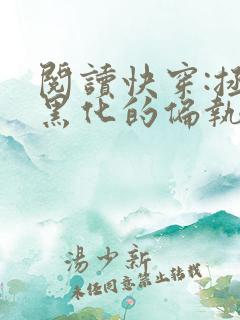 閱讀快穿:拯
黑化的偏執
湯少新
未經同意禁止轉載